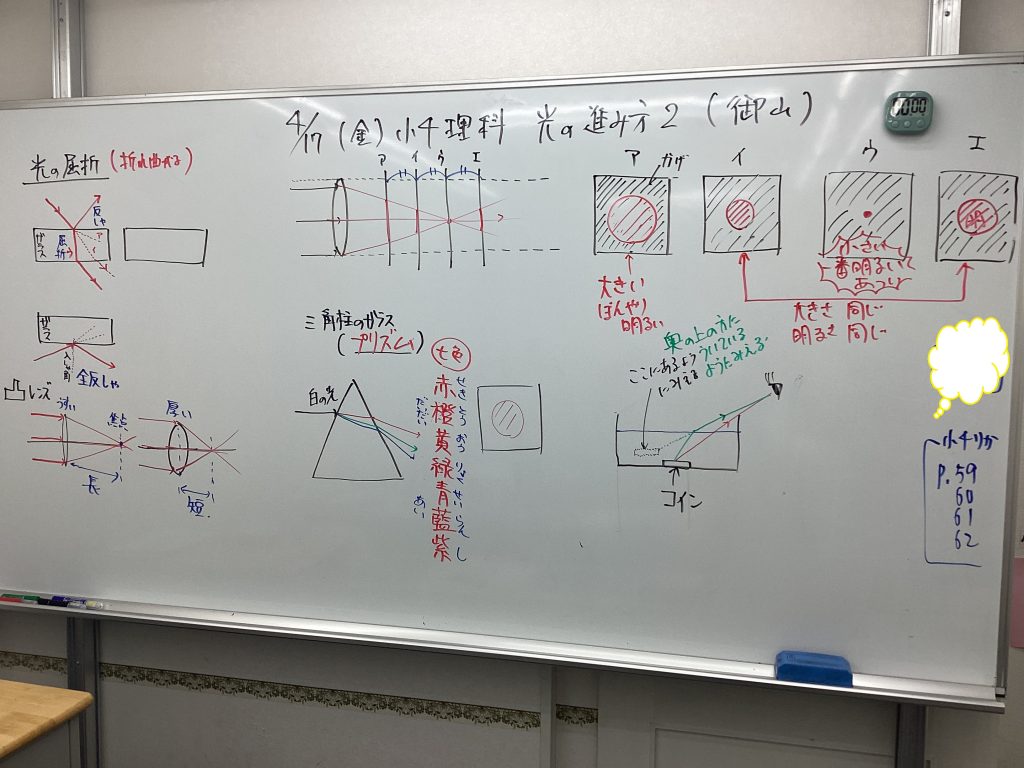 4/17 (金) 小4理科 光の進み方2 (御山)
00:00
光の屈折 (折れ曲がる)
反しゃ
ガラス
屈折
ア
ガラス
入しゃ角
全反しゃ
凸レンズ
うすい
焦点
長
厚い
短
ア イ ウ エ
三角柱のガラス
(プリズム)
七色
白の光
赤 せき
橙 とう だいだい
黄 おう
緑 りょく
青 せい
藍 らん あい
紫 し
ア イ ウ エ
カゲ
明
大きい
ぼんやり
明るい
小さい
一番明るいて
あつい
大きさ 同じ
明るさ 同じ
奥の上の方に
ういている
ようにみえる
ここにあるよう
にみえる
コイン
小4りか
P.59
60
61
62